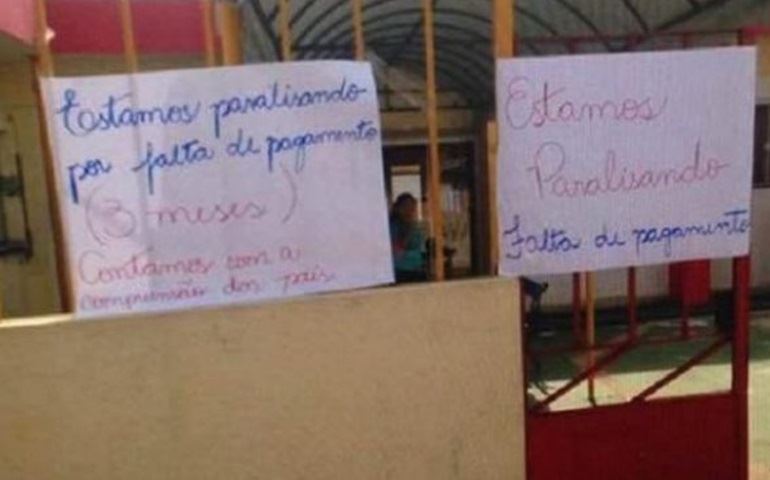 Estamos paralisando
por falta de pagamento
(3 meses)
Contamos com a
compreensão dos pais
Estamos
Paralisando
Falta de pagamento